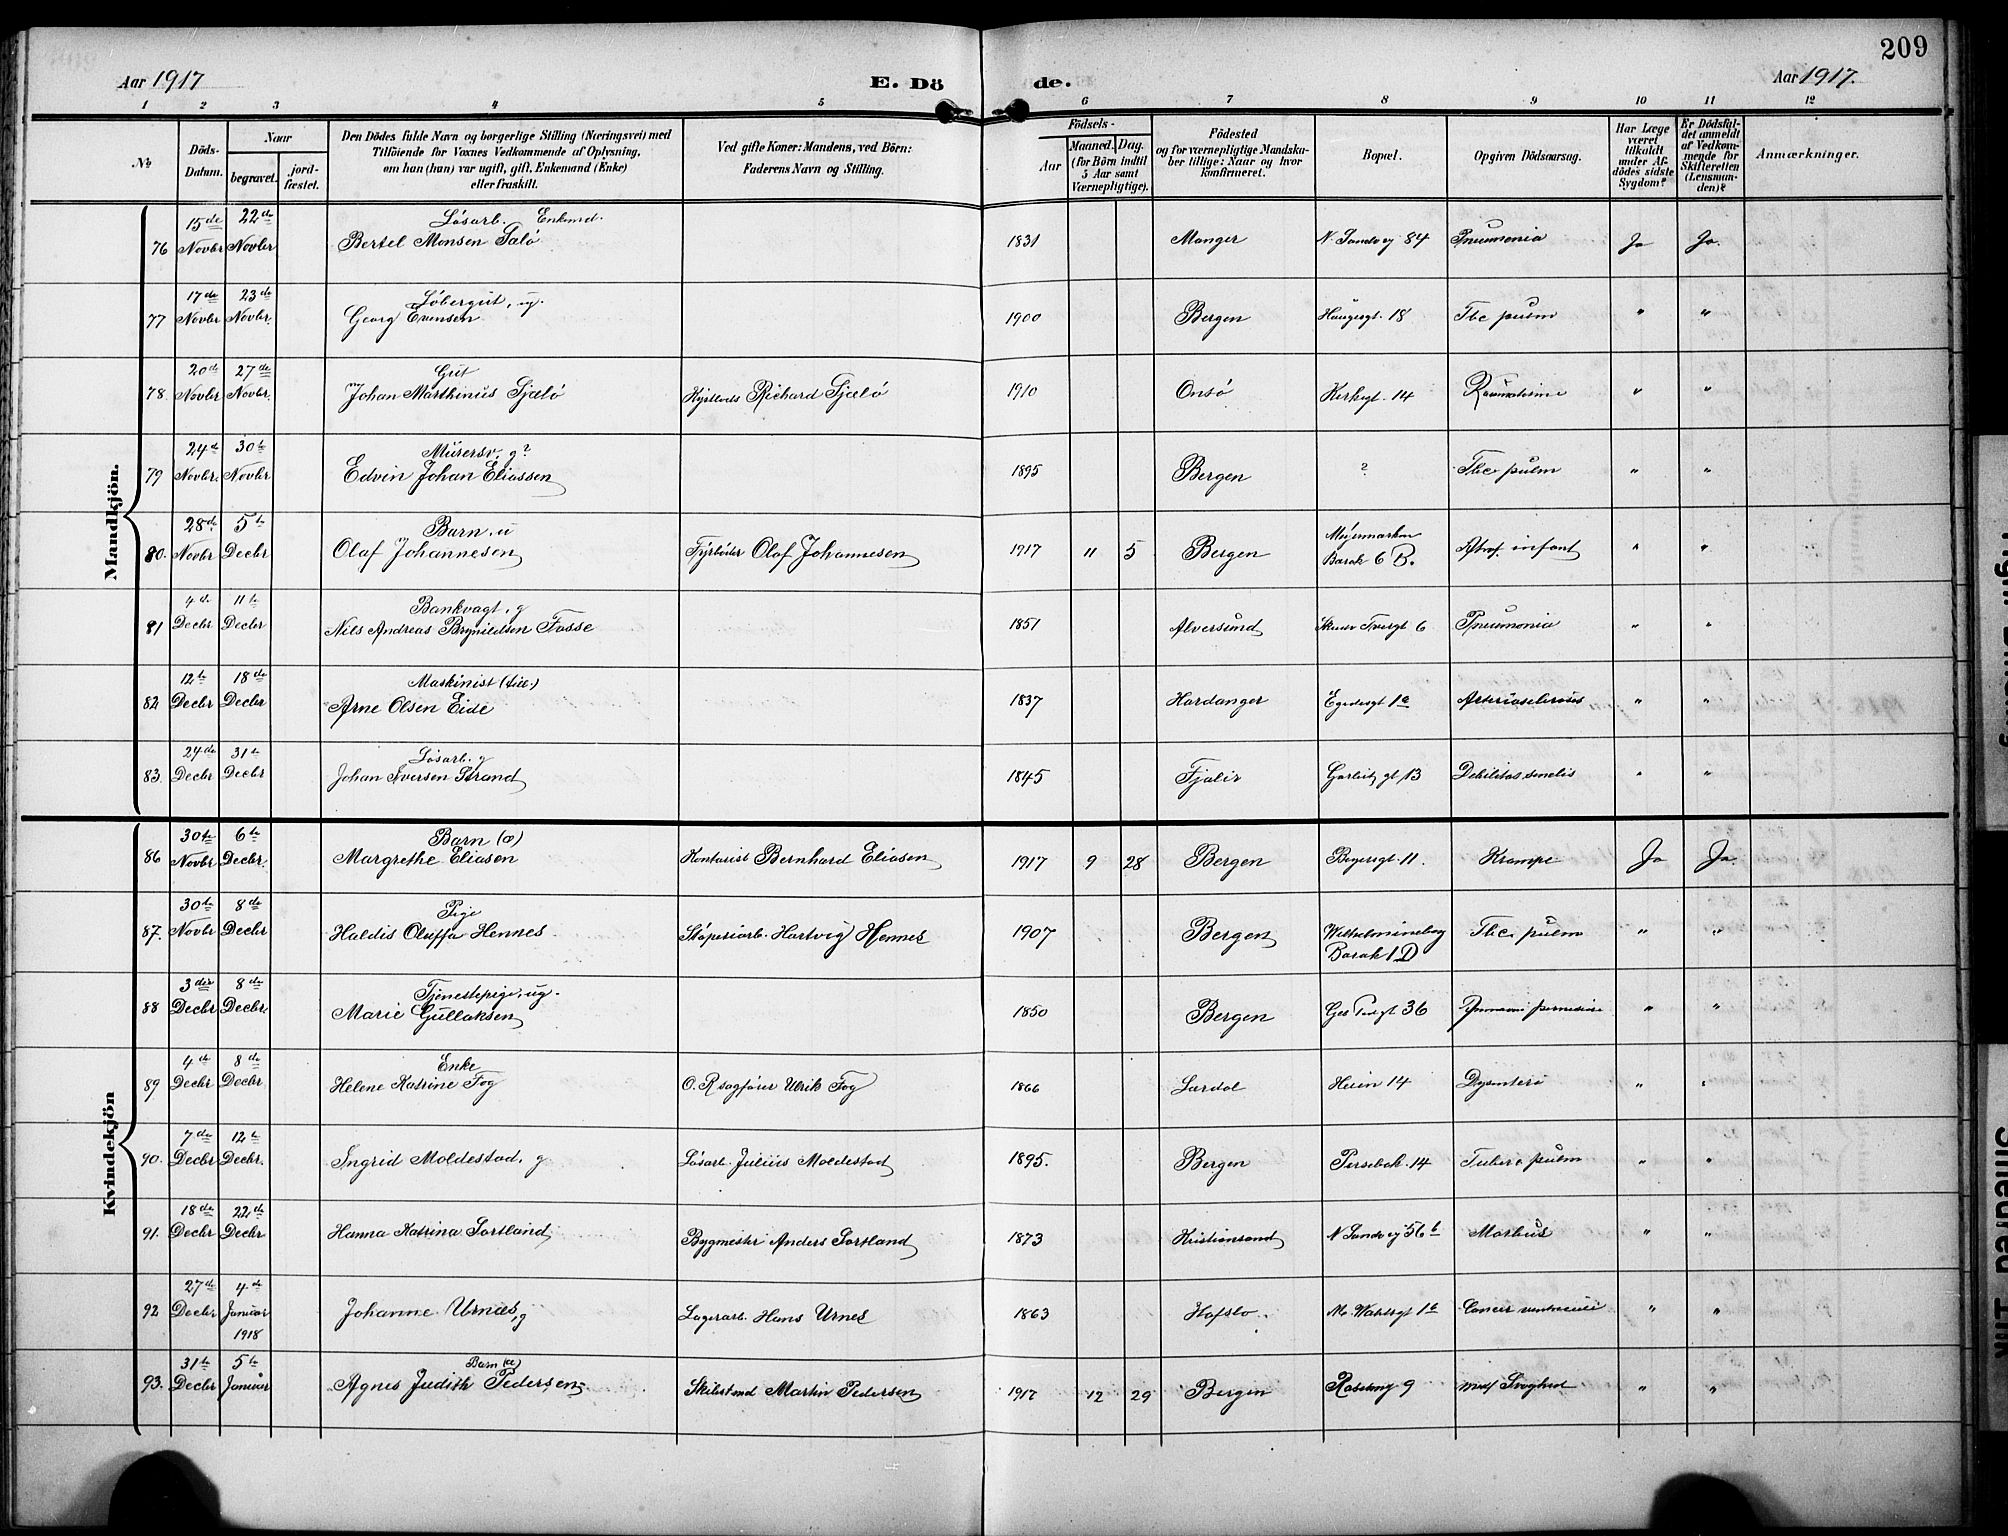 209
Aar 1917 E. Dö de. Aar 1917.
1 2 3 4 5 6 7 8 9 10 11 12
№ Döds-Datum. Naar begravet. jord-fæstet. Den Dödes fulde Navn og borgerlige Stilling (Næringsvei) med Tilföiende for Voxnes Vedkommende af Oplysning, om han (hun) var ugift, gift, Enkemand (Enke) eller fraskilt. Ved gifte Koner: Mandens, ved Börn: Faderens Navn og Stilling. Födsels- Aar Maaned. Dag. (for Börn indtil 5 Aar samt Værnepligtige). Födested og for værnepligtige Mandska-ber tillige: Naar og hvor konfirmeret. Bopæl. Opgiven Dödsaarsag. Har Læge været tilkaldt under Af-dödes sidste Sygdom? Er Dödsfal-det anmeldt af Vedkom-mende for Skifteretten (Lensman-den)? Anmærkninger.
Mandkjön.
76 15de Novbr 22de Novbr Løsarb. Enkmd. Bertel Monsen Salö 1831 Manger N. Sandvg 84 Pneumonia Ja Ja.
77 17de Novbr 23de Novbr. Løbergut, ug. Georg Evensen 1900 Bergen Haugesgt. 18 Tbc pulm " "
78. 20de Novbr 27de Novbr. Gut Johan Marthinus Sjælö Richard Sjælö 1910 Onsö Kirkegt. 14 " "
79 24de Novbr. 30te Novbr Murersv. g? Edvin Johan Eliassen 1895 Bergen ? Tbc pulm " "
80. 28de Novbr 5te Decbr Barn. u Olaf Johannesen Fyrböder Olaf Johannesen 1917 11 5 Bergen Møhlenmarken Barak 6 B. Atrof. infant " "
81 4de Decbr 11te Decbr Bankvagt, g Nils Andreas Brynildsen Fosse 1851 Alversund Tvergt 6 Pneumonia " "
82 12te Decbr 18de Decbr Maskinist Arne Olsen Eide 1837 Hardanger Egedesgt 1a Arteriosclerosis " "
83. 24de Decbr 31te Decbr Løsarb. g Johan Iversen Strand 1845 Fjaler gt 13 Debilitas senilis " "
Kvindekjön
86 30te Novbr 6te Decbr. Barn (æ) Margrethe Eliasen Kontorist Bernhard Eliasen 1917 9 28 Bergen Beyersgt. 11. Krampe Ja Ja.
87. 30te Novbr 8de Decbr Pige Haldis Oluffa Hennes Støperiarb. Hartvig Hennes 1907 Bergen Wilhelmineborg Barak 1 D Tbc. pulm " "
88 3die Decbr 8de Decbr. Tjenestepige, ug. Marie Gullaksen 1850 Bergen 36 " "
89 4de Decbr 8de Decbr Enke Helene Katrine Fog O. R sagfører Ulrik Fog 1866 Lærdal Heien 14 Dysenteri " "
90. 7de Decbr 12te Decbr. Ingrid Moldestad, g Løsarb. Julius Moldestad 1895. Bergen Persebak. 14 Tuberc pulm " "
91. 18de Decbr 22de Decbr Hanna Katrina Sortland Bygmester Anders Sortland 1873 Kristiansand N Sandvg 56b Morbus " "
92 27de Decbr 4de Januar 1918 Johanne Urnæs, g Lagerarb. Hans Urnes 1863 Hafslo. 1a Cancer ventriculi " "
93. 31te Decbr 5te Januar Barn (æ) Agnes Judith Pedersen Martin Pedersen 1917 12 29 Bergen Roseng 9 Svaghed " "